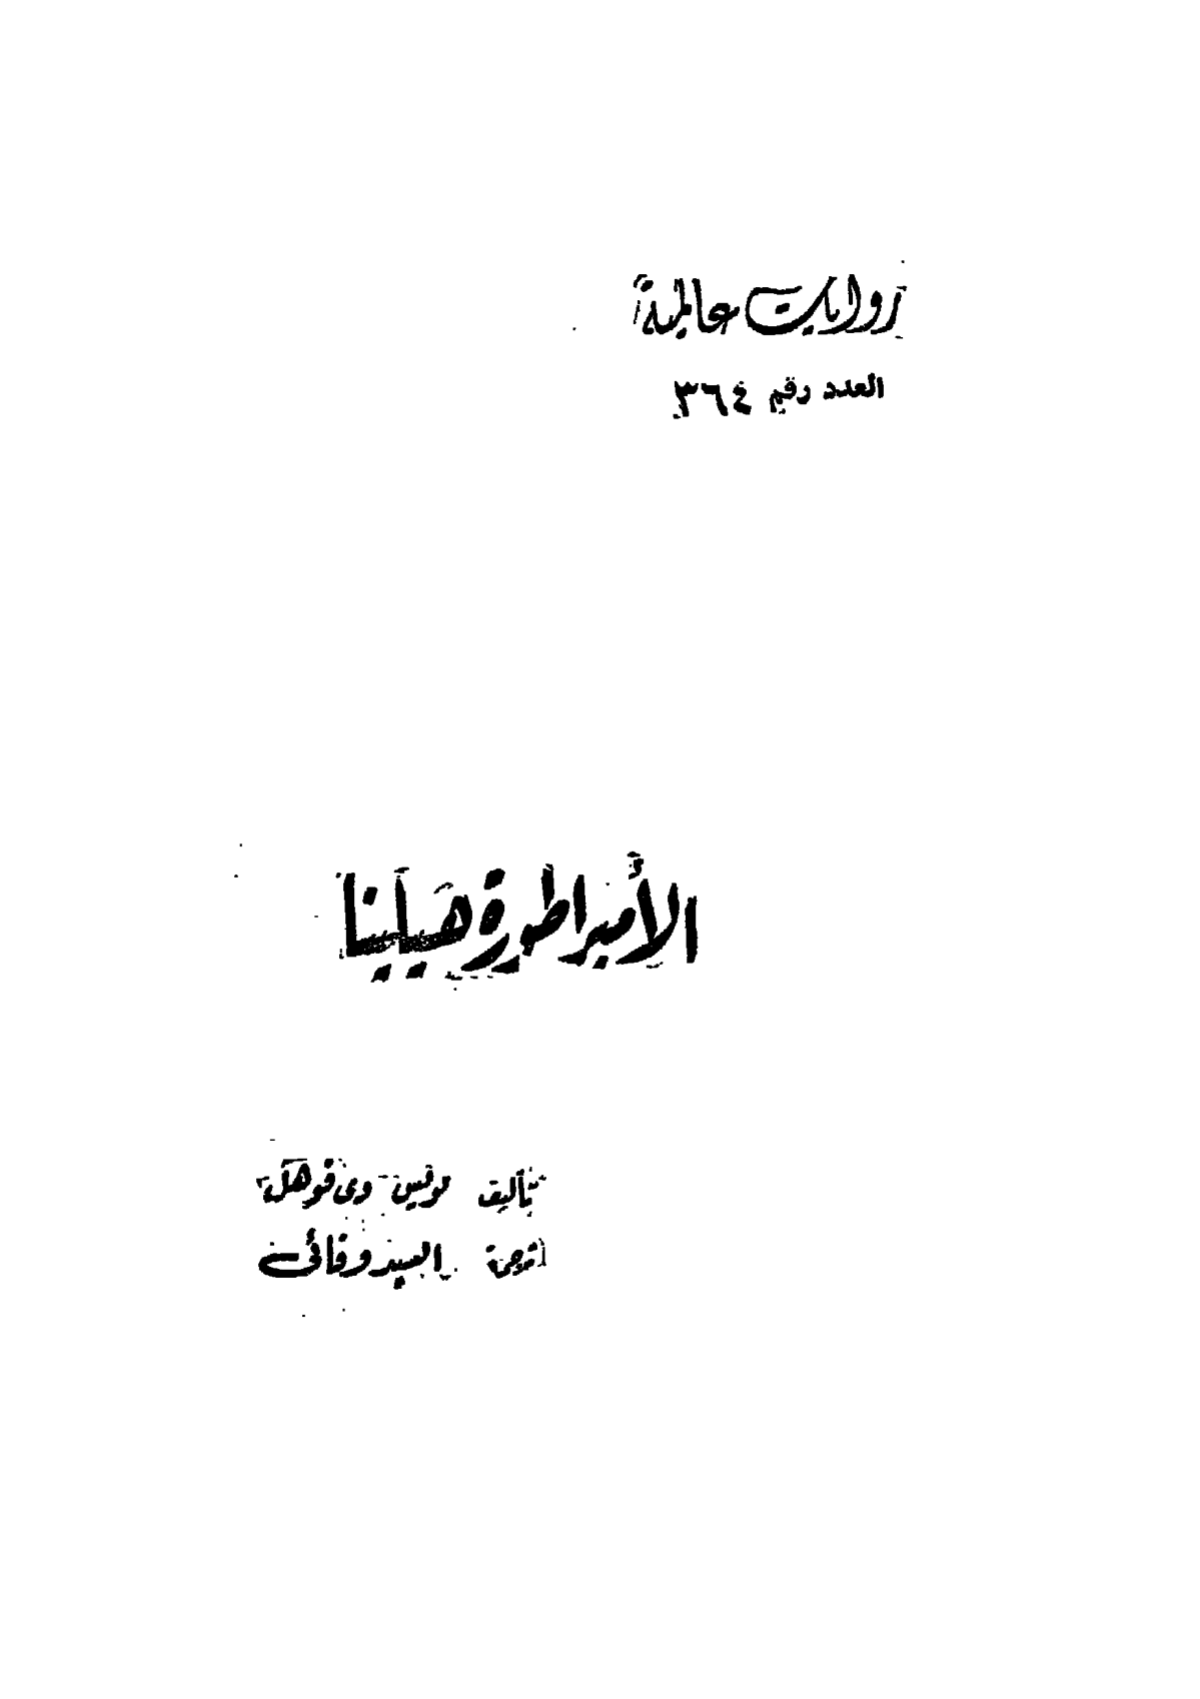 روايات عالمية
العدد رقم ٣٦٤
الأمبراطورة هيلينا
تأليف لويس دى فوهل
ترجمة السيد وفائى